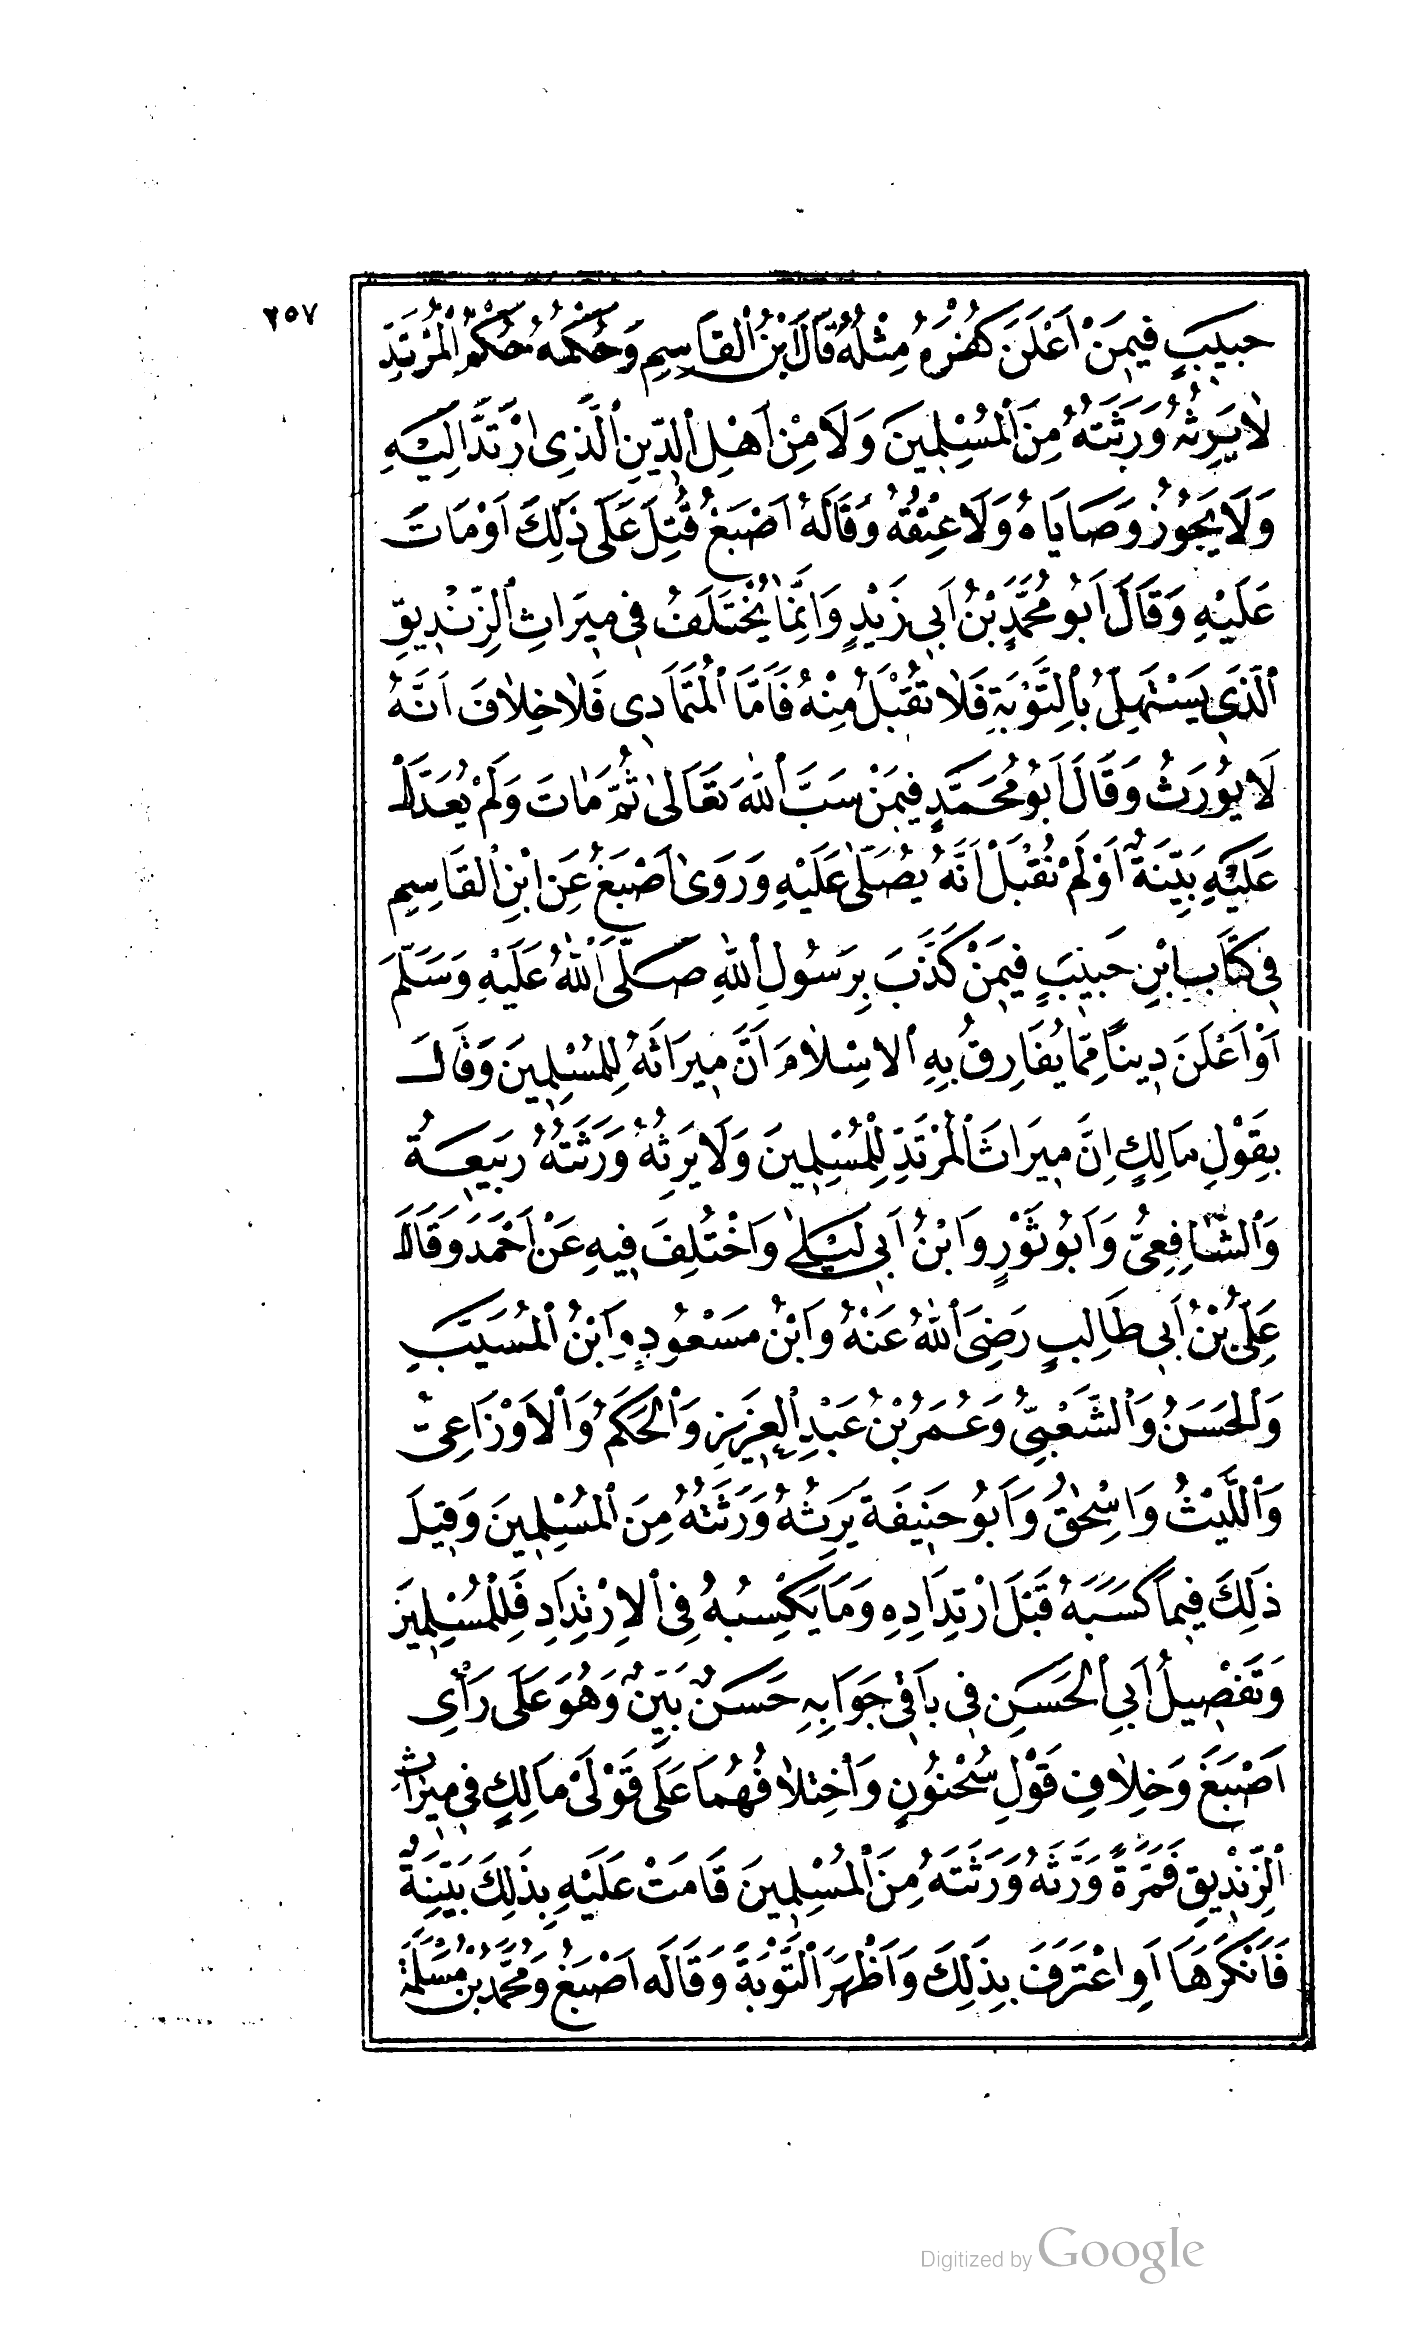 ٢٥٧
حَبِيبٍ فِيمَنْ اَعْلَنَ كُفْرَهُ مِثْلُهُ قَالَ ابْنُ الْقَاسِمِ وَحُكْمُهُ حُكْمُ الْمُرْتَدِّ
لَا يَرِثُهُ وَرَثَتُهُ مِنَ الْمُسْلِمِينَ وَلَا مِنْ اَهْلِ الدِّينِ الَّذِى ارْتَدَّ اِلَيْهِ
وَلَا يَجُوزُ وَصَايَاهُ وَلَا عِتْقُهُ وَقَالَهُ اَصْبَغُ قُتِلَ عَلَى ذٰلِكَ اَوْ مَاتَ
عَلَيْهِ وَقَالَ اَبُو مُحَمَّدِ بْنُ اَبِى زَيْدٍ وَاِنَّمَا يُخْتَلَفُ فِى مِيرَاثِ الزِّنْدِيقِ
الَّذِى يَسْتَهِلُّ بِالتَّوْبَةِ فَلَا تُقْبَلُ مِنْهُ فَاَمَّا الْمُتَمَادِى فَلَا خِلَافَ اَنَّهُ
لَا يُورَثُ وَقَالَ اَبُو مُحَمَّدٍ فِيمَنْ سَبَّ اللهَ تَعَالَى ثُمَّ مَاتَ وَلَمْ يُعَدَّلْ
عَلَيْهِ بَيِّنَةٌ اَوْ لَمْ تُقْبَلْ اَنَّهُ يُصَلَّى عَلَيْهِ وَرَوَى اَصْبَغُ عَنِ ابْنِ الْقَاسِمِ
فِى كِتَابِ ابْنِ حَبِيبٍ فِيمَنْ كَذَّبَ بِرَسُولِ اللهِ صَلَّى اللهُ عَلَيْهِ وَسَلَّمَ
اَوْ اَعْلَنَ دِينًا مِمَّا يُفَارِقُ بِهِ الْاِسْلَامَ اَنَّ مِيرَاثَهُ لِلْمُسْلِمِينَ وَقَالَ
بِقَوْلِ مَالِكٍ اِنَّ مِيرَاثَ الْمُرْتَدِّ لِلْمُسْلِمِينَ وَلَا يَرِثُهُ وَرَثَتُهُ رَبِيعَةُ
وَالشَّافِعِىُّ وَاَبُو ثَوْرٍ وَابْنُ اَبِى لَيْلَى وَاخْتُلِفَ فِيهِ عَنْ اَحْمَدَ وَقَالَ
عَلِىُّ بْنُ اَبِى طَالِبٍ رَضِىَ اللهُ عَنْهُ وَابْنُ مَسْعُودٍ وَابْنُ الْمُسَيَّبِ
وَالْحَسَنُ وَالشَّعْبِىُّ وَعُمَرُ بْنُ عَبْدِ الْعَزِيزِ وَالْحَكَمُ وَالْاَوْزَاعِىُّ
وَاللَّيْثُ وَاِسْحٰقُ وَاَبُو حَنِيفَةَ يَرِثُهُ وَرَثَتُهُ مِنَ الْمُسْلِمِينَ وَقِيلَ
ذٰلِكَ فِيمَا كَسَبَهُ قَبْلَ ارْتِدَادِهِ وَمَا يَكْسِبُهُ فِى الْاِرْتِدَادِ فَلِلْمُسْلِمِينَ
وَتَفْصِيلُ اَبِى الْحَسَنِ فِى بَاقِى جَوَابِهِ حَسَنٌ بَيِّنٌ وَهُوَ عَلَى رَأْىِ
اَصْبَغَ وَخِلَافِ قَوْلِ سُحْنُونٍ وَاخْتِلَافُهُمَا عَلَى قَوْلَىْ مَالِكٍ فِى مِيرَاثِ
الزِّنْدِيقِ فَمَرَّةً وَرَّثَهُ وَرَثَتَهُ مِنَ الْمُسْلِمِينَ قَامَتْ عَلَيْهِ بِذٰلِكَ بَيِّنَةٌ
فَاَنْكَرَهَا اَوِ اعْتَرَفَ بِذٰلِكَ وَاَظْهَرَ التَّوْبَةَ وَقَالَهُ اَصْبَغُ وَمُحَمَّدُ بْنُ مَسْلَمَةَ
Digitized by Google